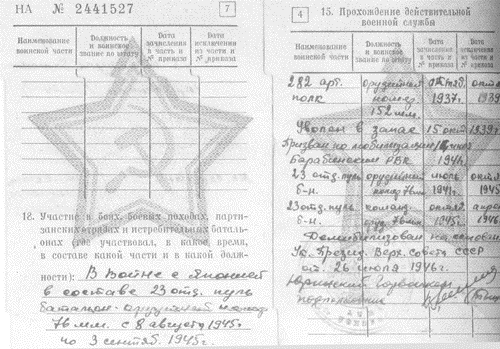 НА № 2441527
7
Наименование воинской части
Должность и воинское звание по штату
Дата зачисления в часть и № приказа
Дата исключения из части и № приказа
18. Участие в боях, боевых походах, парти-
занских отрядах и истребительных баталь-
онах (где участвовал, в какое время,
в составе какой части и в какой долж-
ности): В войне с Японией
в составе 23 отд. пуль
батальон - орудийный
76 мм. с 8 августа 1945г.
по 3 сентяб. 1945г.
4
15. Прохождение действительной
военной службы
Наименование воинской части
Должность и воинское звание по штату
Дата зачисления в часть и № приказа
Дата исключения из части и № приказа
282 арт. орудийный октяб. октя
полк команд. 1937г. 1939
152 мм.
Уволен в запас 15 окт 1939г
Призван по мобилизации
Барабинским РВК 1941г.
23 отд. пуль орудийн июль октя
б-н. 76мм 1941г. 1945
23 отд. пуль команд. октяб апре
б-н. 76мм 1945г. 1946г
Демобилизован на основан
Ук. Презид. Верх. Совета СССР
от 26 июля 1946г.
подполковник